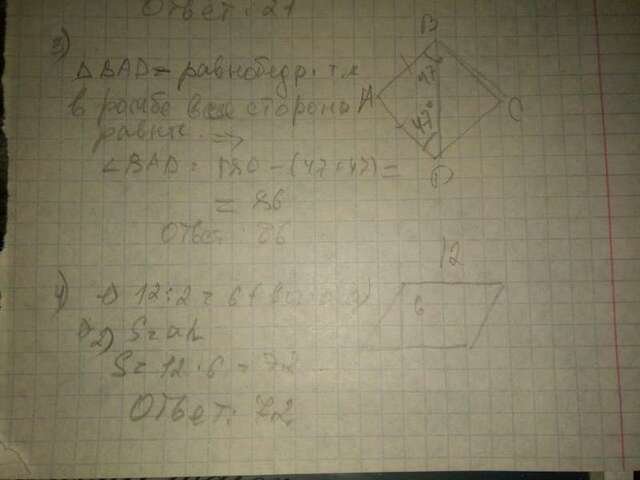 Ответ: 21
3)
Δ BAD - равнобедр. т.к
в ромбе все стороны
равны. ⇒
∠BAD = 180 - (47+47) =
= 86
Ответ: 86
B
A
C
D
47
47°
4) 1) 12:2 = 6 (высота)
2) S = ah
S = 12 · 6 = 72
Ответ: 72
12
6